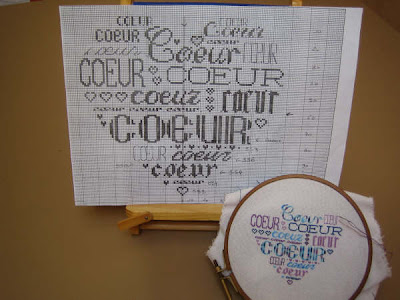 COEUR
COEUR Coeur
coeur Coeur COEUR
COEUR COEUR
coeur coeur
COEUR
COEUR coeur
coeur
Coeur COEUR
COEUR COEUR
coeur coeur
COEUR
COEUR coeur
coeur